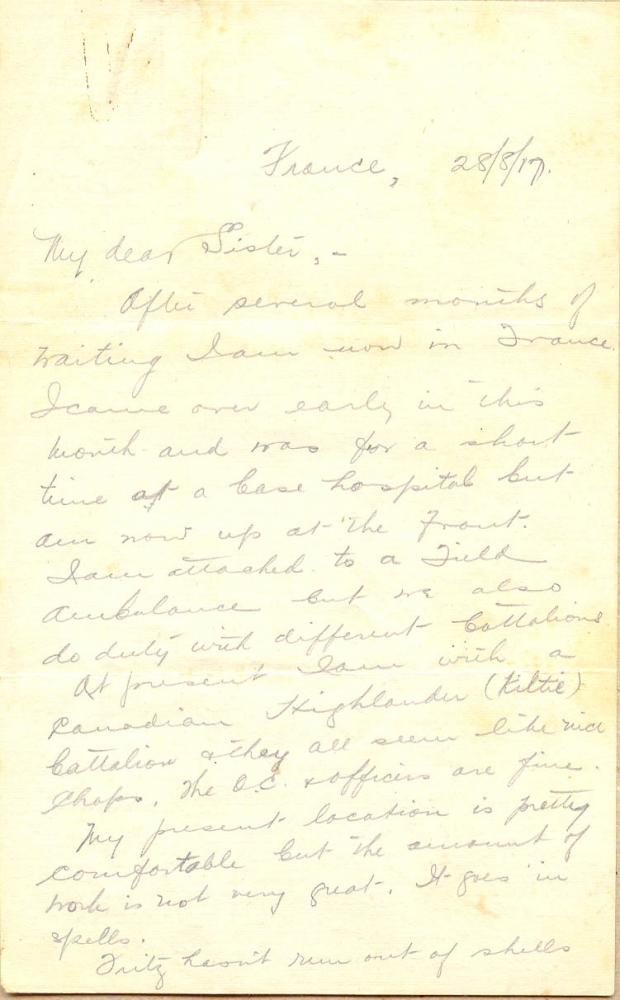 France, 28/8/17.
My dear Sister, -
After several months of
waiting I am now in France.
I came over early in this
month and was for a short
time at a base hospital but
am now up at the Front.
I am attached to a Field
Ambulance but we also
do duty with different battalions
At present I am with a
Canadian Highlander (Kiltie)
battalion & they all seem like nice
chaps. The O.C. & officers are fine.
My present location is pretty
comfortable but the amount of
work is not very great. It goes in
spells.
Fritz hasn't run out of shells